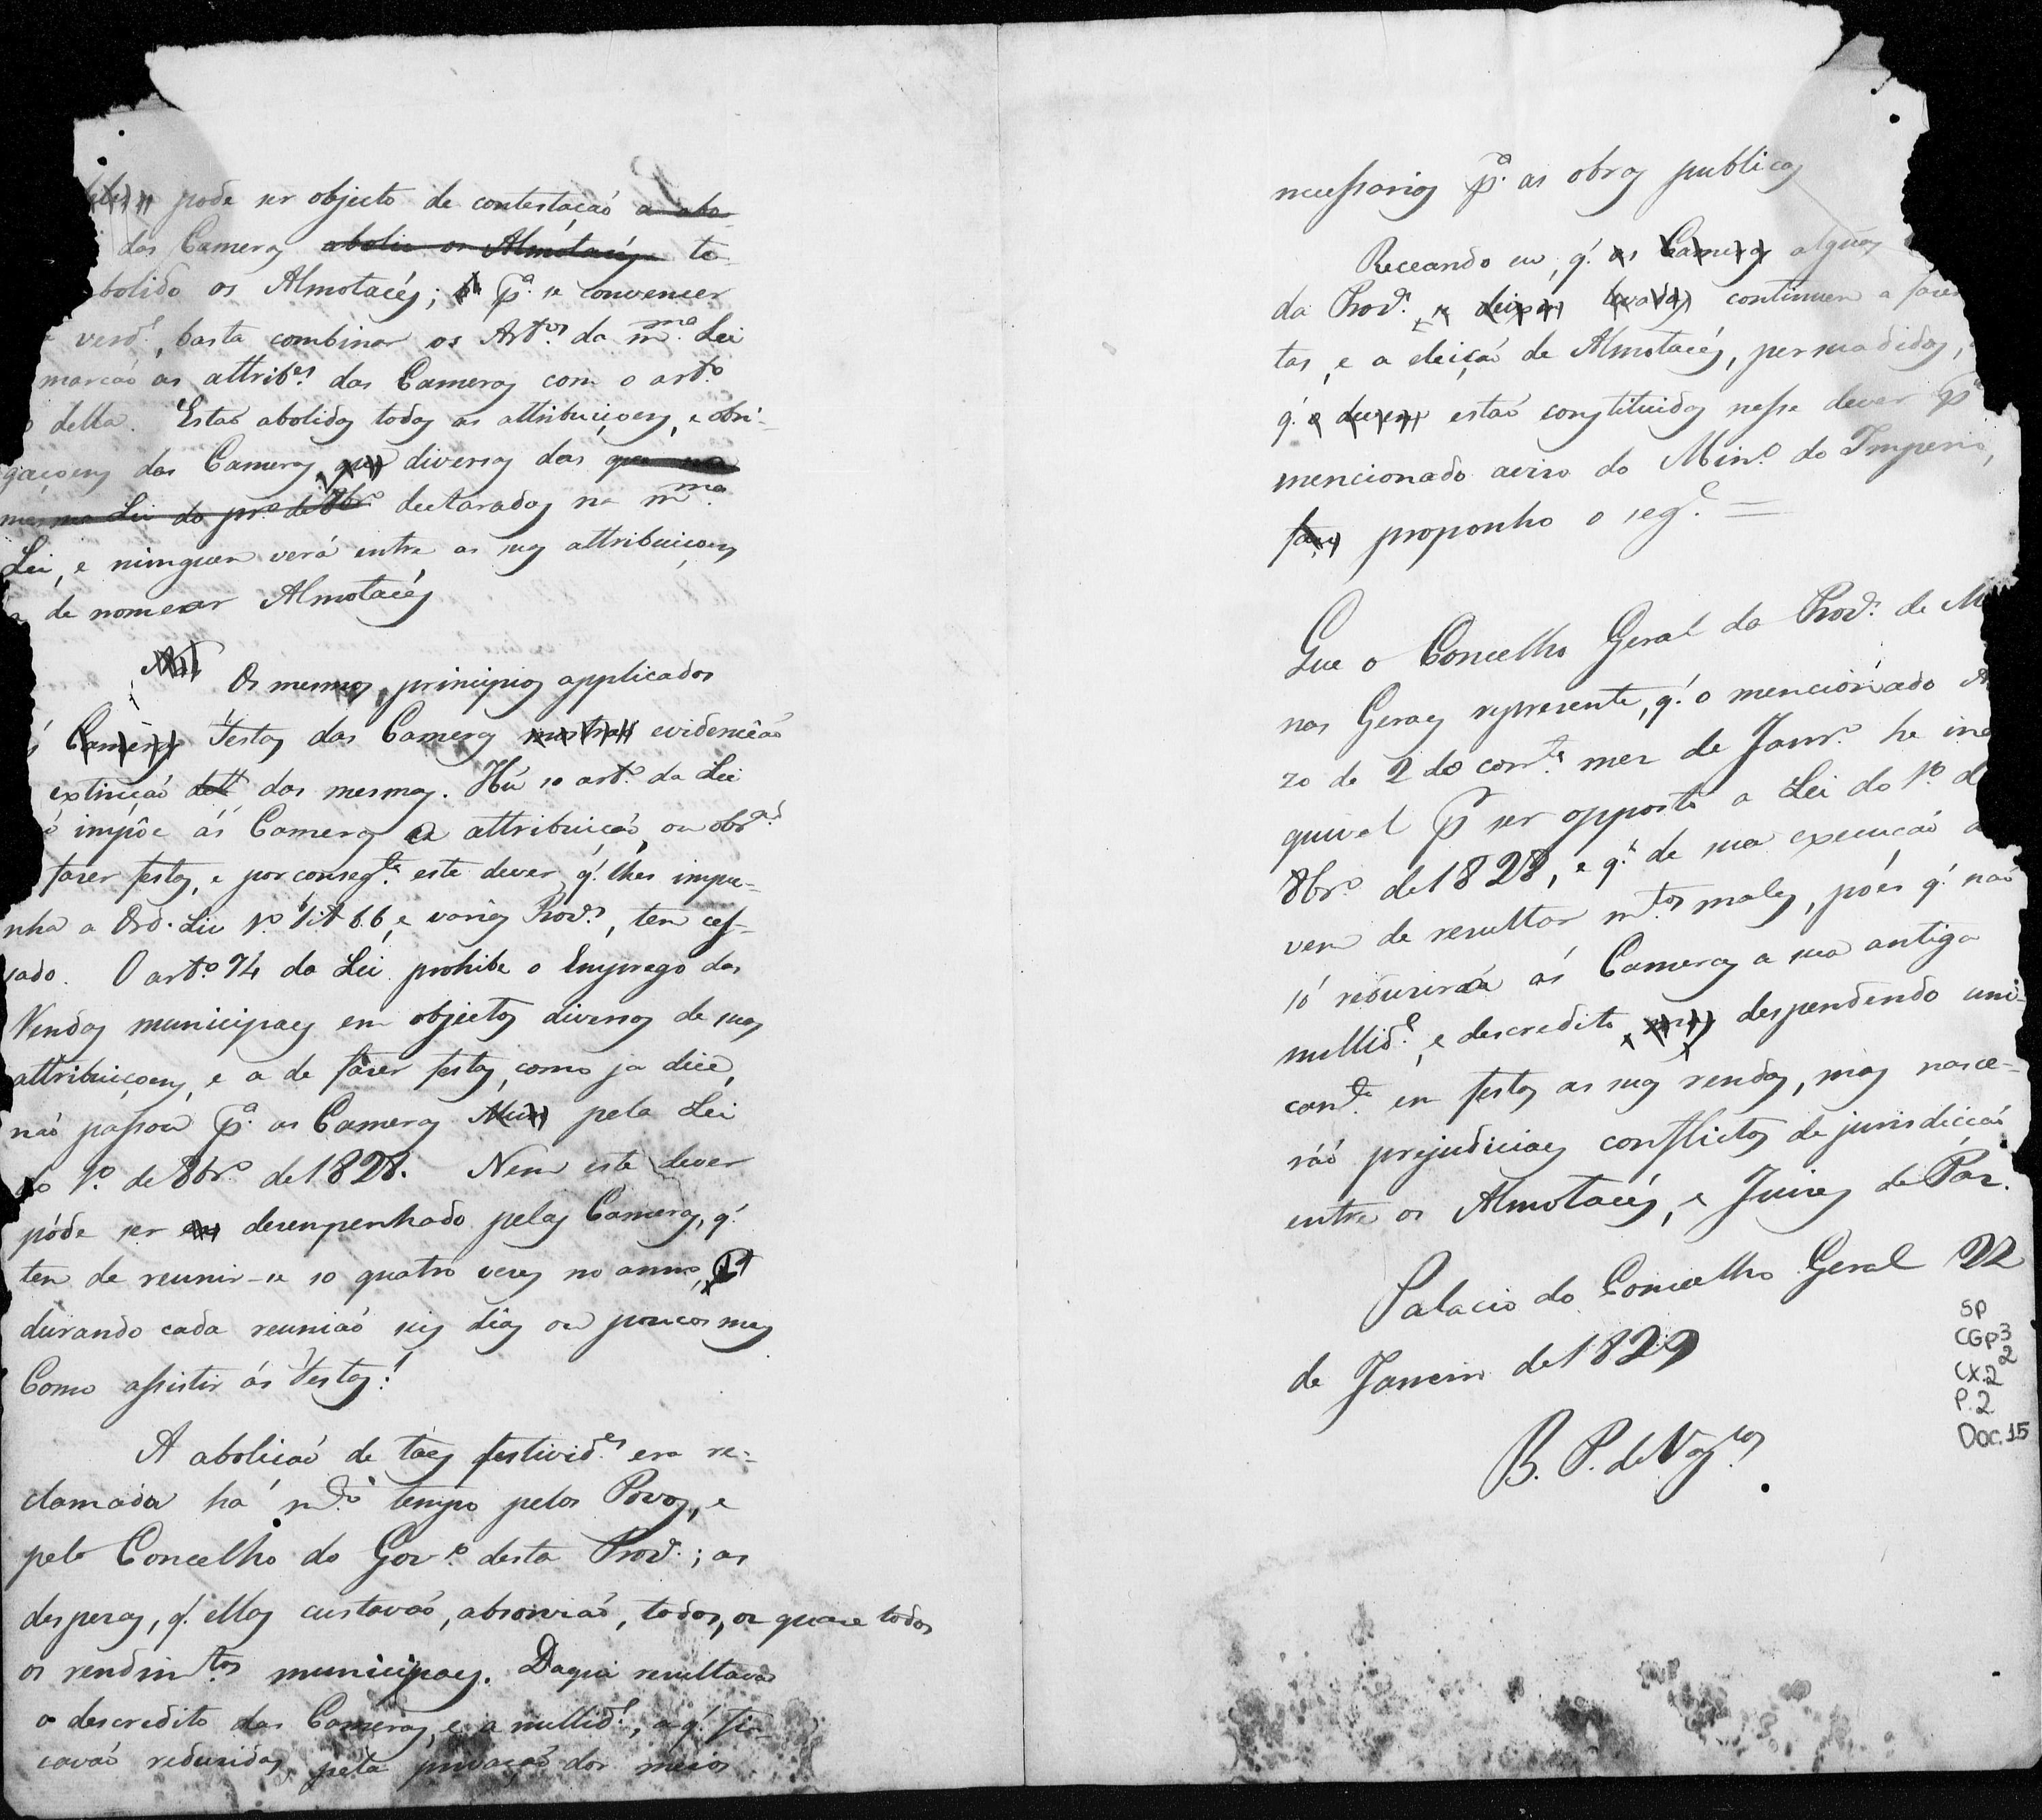 pode ser objecto de contestação a abo-
das Cameras abolio os Almotacés te-
bolido os Almotacés; pª se convencer
verdᵉ, basta combinar os Artᵒˢ da mᵐᵃ Lei
marcão as attribᵉˢ das Cameras com o artᵒ
della. Estaõ abolidas todas as attribuiçoens, e obri-
gaçoens das Cameras, que diversas das que na
mesma Lei do prᵒ de 8brᵒ declaradas na mᵐᵃ
Lei, e ninguem verá entre as suas attribuiçoens
a de nomear Almotacés
Art Os mesmos principios applicados
ás Cameras Festas das Cameras mostraõ evidencêao
extincaõ dell das mesmas. Hũ só artᵒ da Lei
impôe ás Cameras a attribuiçaõ, ou obrᵃᵐ
fazer festas, e por consegᵗᵉ este dever q' lhes impu-
nha a Ord. Liv 1º Tit 66, e varias Provˢ, tem ces-
sado. O artᵒ 74 da Lei prohibe o Emprego das
Rendas municipaes em objectos diversos de suas
attribuiçoens, e a de fazer festas, como ja dice,
não passou pª as Cameras Mun pela Lei
do 1º de 8brᵒ de 1828. Nem este dever
póde ser desempenhado pelas Cameras, q'
tem de reunir-se so quatro vezes no anno,
durando cada reuniaõ seis dias ou poucos mais
Como assistir ás Festas!
A aboliçaõ de taes festividᵉˢ era re-
clamada há mᵗᵒ tempo pelos Povos, e
pelo Concelho do Govᵒ desta Provᵃ; as
despezas, q' ellas custavaõ, absorviaõ, todos, ou quase todos
os rendimᵗᵒˢ municipaes. Daqui resultava
o descredito das Cameras, e a nullidᵉ, a q' fi-
cavaõ reduzidas, pela privaçaõ dos meios
necessarios pª as obras publicas
Receando eu, q' as Cameras algũas
da Provᵃ, se deixem levadas continuem a fazer
tas, e a eleiçaõ de Almotacés, persuadidas,
q' e devem estaõ constituidas nesse dever pᵒ
mencionado aviso do Minᵒ do Imperio,
faço proponho o segᵉ =
Que o Concelho Geral da Provᵃ de Mi
nas Geraes represente, q' o mencionado A
zo de 2 do corrᵗᵉ mez de Janrᵒ he inex
quivel pʳ ser opposto a Lei do 1º de
8brᵒ de 1828, e qᵉ de sua execuçaõ de
vem de resultar mᵗᵒˢ males, poés q' naõ
só reduzirá ás Cameras a sua antiga
nullidᵉ, e descredito, despendendo uni-
camᵗᵉ em festas as suas rendas, mas nasce-
ráõ prejudiciaes conflictos de jurisdicçaõ
entre os Almotacés, e Juizes de Paz.
Palacio do Concelho Geral 22
de Janeiro de 1829
B. P. de Vascᵒˢ
SP
CGP3
Cx.2
2
P.2
Doc.15